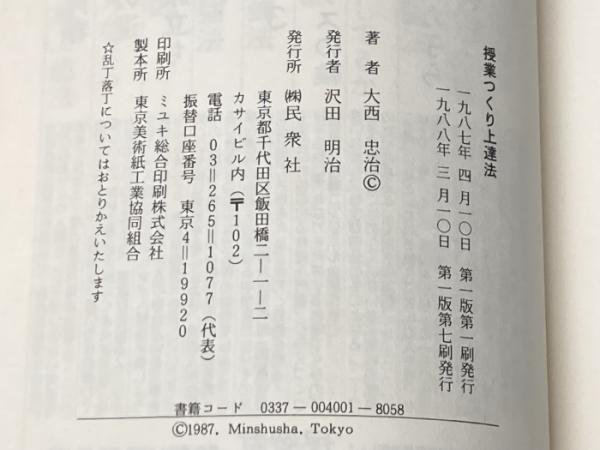 授業つくり上達法
一九八七年 四 月一〇日 第一版第一刷発行
一九八八年 三 月一〇日 第一版第七刷発行
著 者 大西 忠治©
発行者 沢田 明治
発行所 ㈱民 衆 社
東京都千代田区飯田橋二―一―二
カサイビル内(〒102)
電話 03=265=1077(代表)
振替口座番号 東京4=19920
印刷所 ミユキ総合印刷株式会社
製本所 東京美術紙工業協同組合
☆乱丁落丁についてはおとりかえいたします
書籍コード 0337―004001―8058
©1987, Minshusha, Tokyo